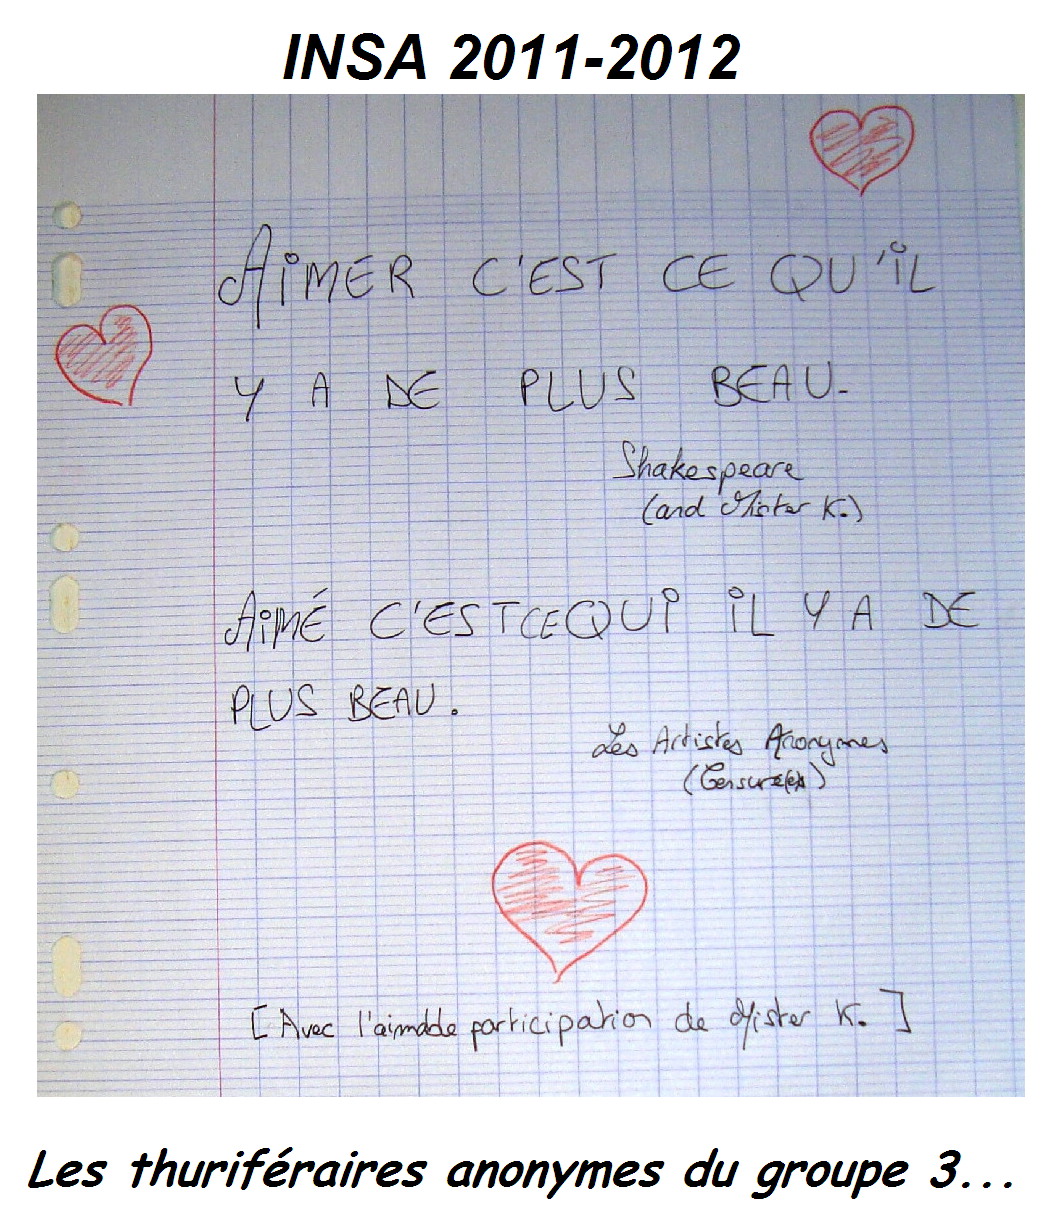 INSA 2011-2012
AiMER C'EST CE QU'iL
Y A DE PLUS BEAU.
Shakespeare
(and Mister K.)
AiMÉ C'EST CE QUi iL Y A DE
PLUS BEAU.
Les Artistes Anonymes
(Censuré(e)s)
[Avec l'aimable participation de Mister K.]
Les thuriféraires anonymes du groupe 3...